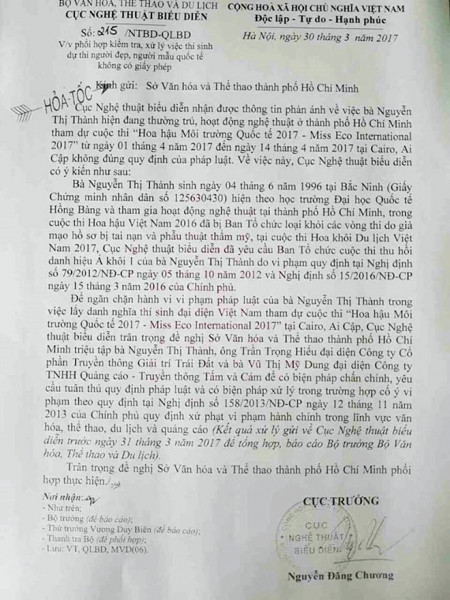 BỘ VĂN HÓA, THỂ THAO VÀ DU LỊCH
CỤC NGHỆ THUẬT BIỂU DIỄN
CỘNG HOÀ XÃ HỘI CHỦ NGHĨA VIỆT NAM
Độc lập - Tự do - Hạnh phúc
Số: 215 /NTBD-QLBD
V/v phối hợp kiểm tra, xử lý việc thí sinh
dự thi người đẹp, người mẫu quốc tế
không có giấy phép
Hà Nội, ngày 30 tháng 3 năm 2017
HỎA TỐC
Kính gửi: Sở Văn hóa và Thể thao thành phố Hồ Chí Minh
Cục Nghệ thuật biểu diễn nhận được thông tin phản ánh về việc bà Nguyễn
Thị Thành hiện đang thường trú, hoạt động nghệ thuật ở thành phố Hồ Chí Minh
tham dự cuộc thi “Hoa hậu Môi trường Quốc tế 2017 - Miss Eco International
2017” từ ngày 01 tháng 4 năm 2017 đến ngày 14 tháng 4 năm 2017 tại Cairo, Ai
Cập không đúng quy định của pháp luật. Về việc này, Cục Nghệ thuật biểu diễn
có ý kiến như sau:
Bà Nguyễn Thị Thành sinh ngày 04 tháng 6 năm 1996 tại Bắc Ninh (Giấy
Chứng minh nhân dân số 125630430) hiện theo học trường Đại học Quốc tế
Hồng Bàng và tham gia hoạt động nghệ thuật tại thành phố Hồ Chí Minh, trong
cuộc thi Hoa hậu Việt Nam 2016 đã bị Ban Tổ chức loại khỏi các vòng thi do giả
mạo hồ sơ bị tai nạn và phẫu thuật thẩm mỹ, tại cuộc thi Hoa khôi Du lịch Việt
Nam 2017, Cục Nghệ thuật biểu diễn đã yêu cầu Ban Tổ chức cuộc thi thu hồi
danh hiệu Á khôi 1 của bà Nguyễn Thị Thành do vi phạm quy định tại Nghị định
số 79/2012/NĐ-CP ngày 05 tháng 10 năm 2012 và Nghị định số 15/2016/NĐ-CP
ngày 15 tháng 3 năm 2016 của Chính phủ.
Để ngăn chặn hành vi vi phạm pháp luật của bà Nguyễn Thị Thành trong
việc lấy danh nghĩa thí sinh đại diện Việt Nam tham dự cuộc thi “Hoa hậu Môi
trường Quốc tế 2017 - Miss Eco International 2017” tại Cairo, Ai Cập, Cục Nghệ
thuật biểu diễn trân trọng đề nghị Sở Văn hóa và Thể thao thành phố Hồ Chí
Minh triệu tập bà Nguyễn Thị Thành, ông Trần Trọng Hiếu đại diện Công ty Cổ
phần Truyền thông Giải trí Trái Đất và bà Vũ Thị Mỹ Dung đại diện Công ty
TNHH Quảng cáo - Truyền thông Tấm và Cám để có biện pháp chấn chỉnh, yêu
cầu tuân thủ quy định pháp luật và có biện pháp xử lý trong trường hợp cố ý vi
phạm theo quy định tại Nghị định số 158/2013/NĐ-CP ngày 12 tháng 11 năm
2013 của Chính phủ quy định xử phạt vi phạm hành chính trong lĩnh vực văn
hóa, thể thao, du lịch và quảng cáo (Kết quả xử lý gửi về Cục Nghệ thuật biểu
diễn trước ngày 31 tháng 3 năm 2017 để tổng hợp, báo cáo Bộ trưởng Bộ Văn
hóa, Thể thao và Du lịch).
Trân trọng đề nghị Sở Văn hóa và Thể thao thành phố Hồ Chí Minh phối
hợp thực hiện./.
Nơi nhận:
- Như trên;
- Bộ trưởng (để báo cáo);
- Thứ trưởng Vương Duy Biên (để báo cáo);
- Thanh tra Bộ (để phối hợp);
- Lưu: VT, QLBD, MVD(06).
CỤC TRƯỞNG
CỤC
NGHỆ THUẬT
BIỂU DIỄN
Nguyễn Đăng Chương